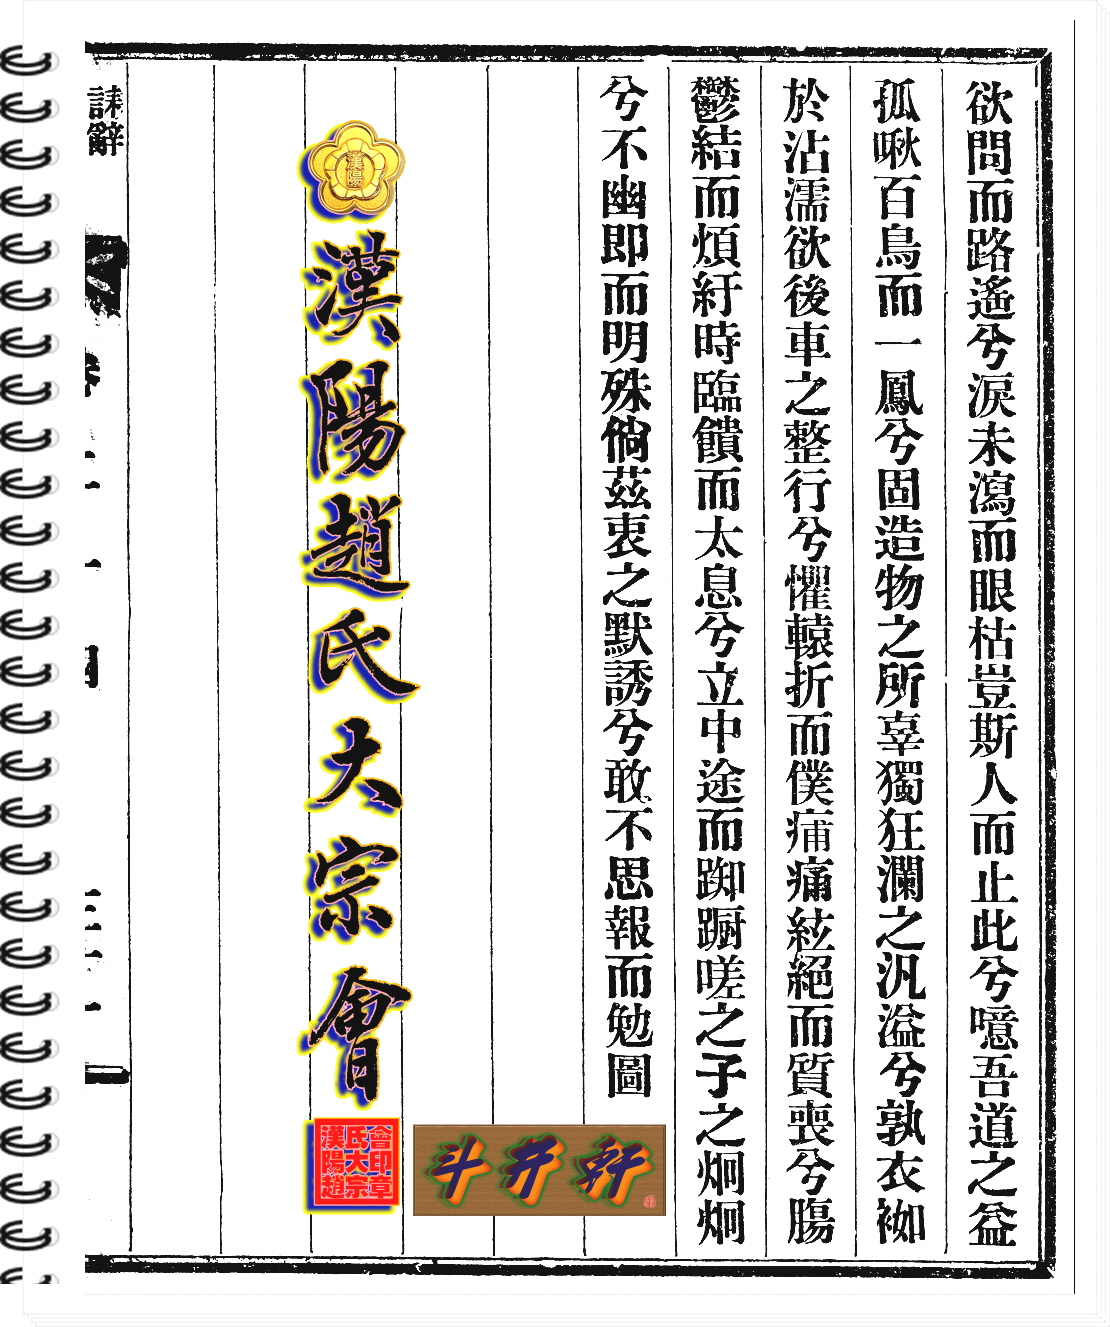 欲問而路遙兮淚未瀉而眼枯豈斯人而止此兮噫吾道之益
孤啾百鳥而一鳳兮固造物之所辜獨狂瀾之汎溢兮孰衣袽
於沾濡欲後車之整行兮懼轅折而僕痡痛絃絕而質喪兮膓
鬱結而煩紆時臨饋而太息兮立中途而踟躕嗟之子之炯炯
兮不幽即而明殊倘茲衷之默誘兮敢不思報而勉圖
斗井軒
漢陽
漢陽趙氏大宗會
漢陽趙
氏大宗
會印章
誄辭